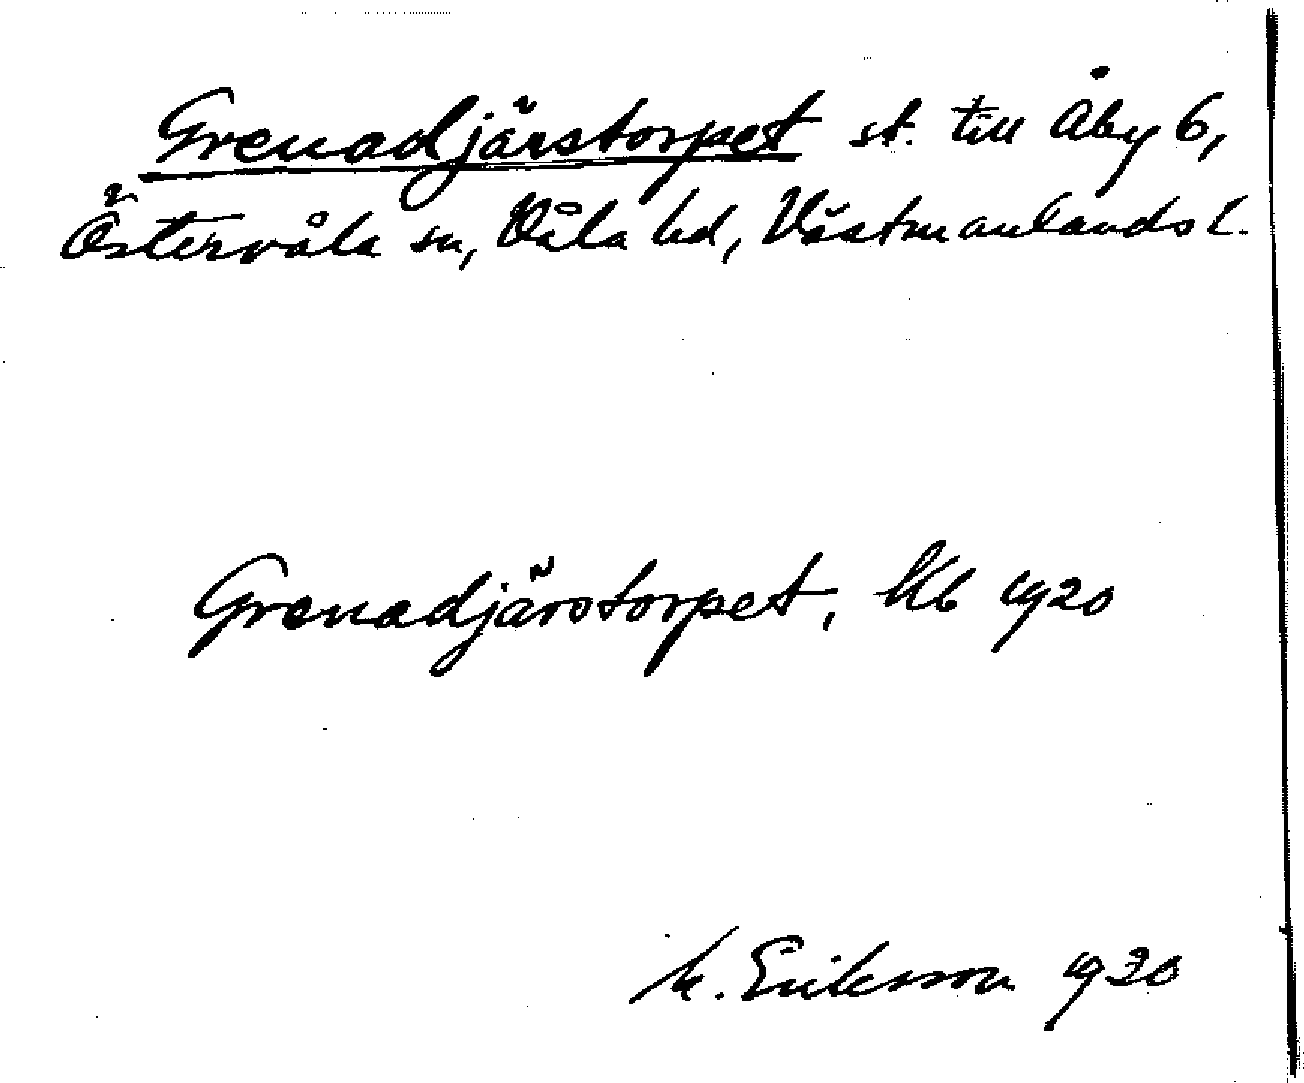 Grenadjärstorpet st. till Åby 6,
Östervåla sn, Våla hd, Västmanlands l.
Grenadjärstorpet, Kb 1920
M. Eriksson 1930